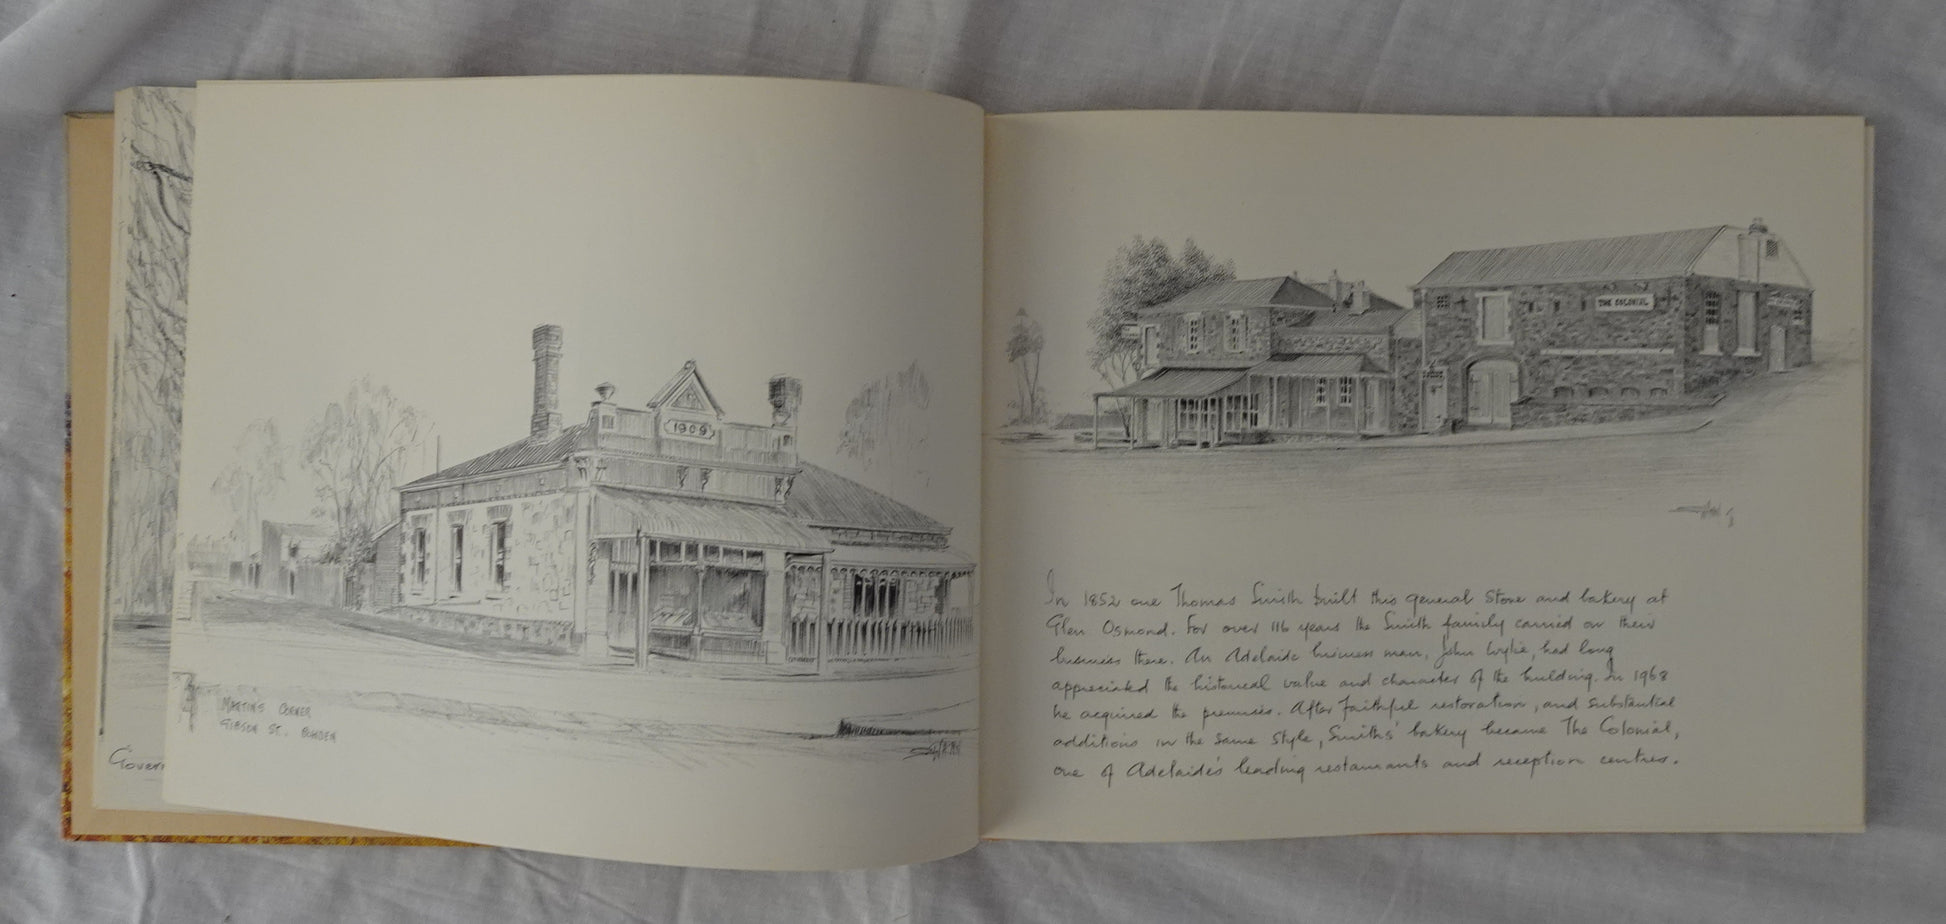 1909
MARTIN'S CORNER
GIBSON ST., BOWDEN
Govern
THE COLONIAL
In 1852 one Thomas Smith built this general store and bakery at
Glen Osmond. For over 116 years the Smith family carried on their
business there. An Adelaide business man, John Wylie, had long
appreciated the historical value and character of the building. In 1968
he acquired the premises. After faithful restoration, and substantial
additions in the same style, Smith's bakery became The Colonial,
one of Adelaide's leading restaurants and reception centres.